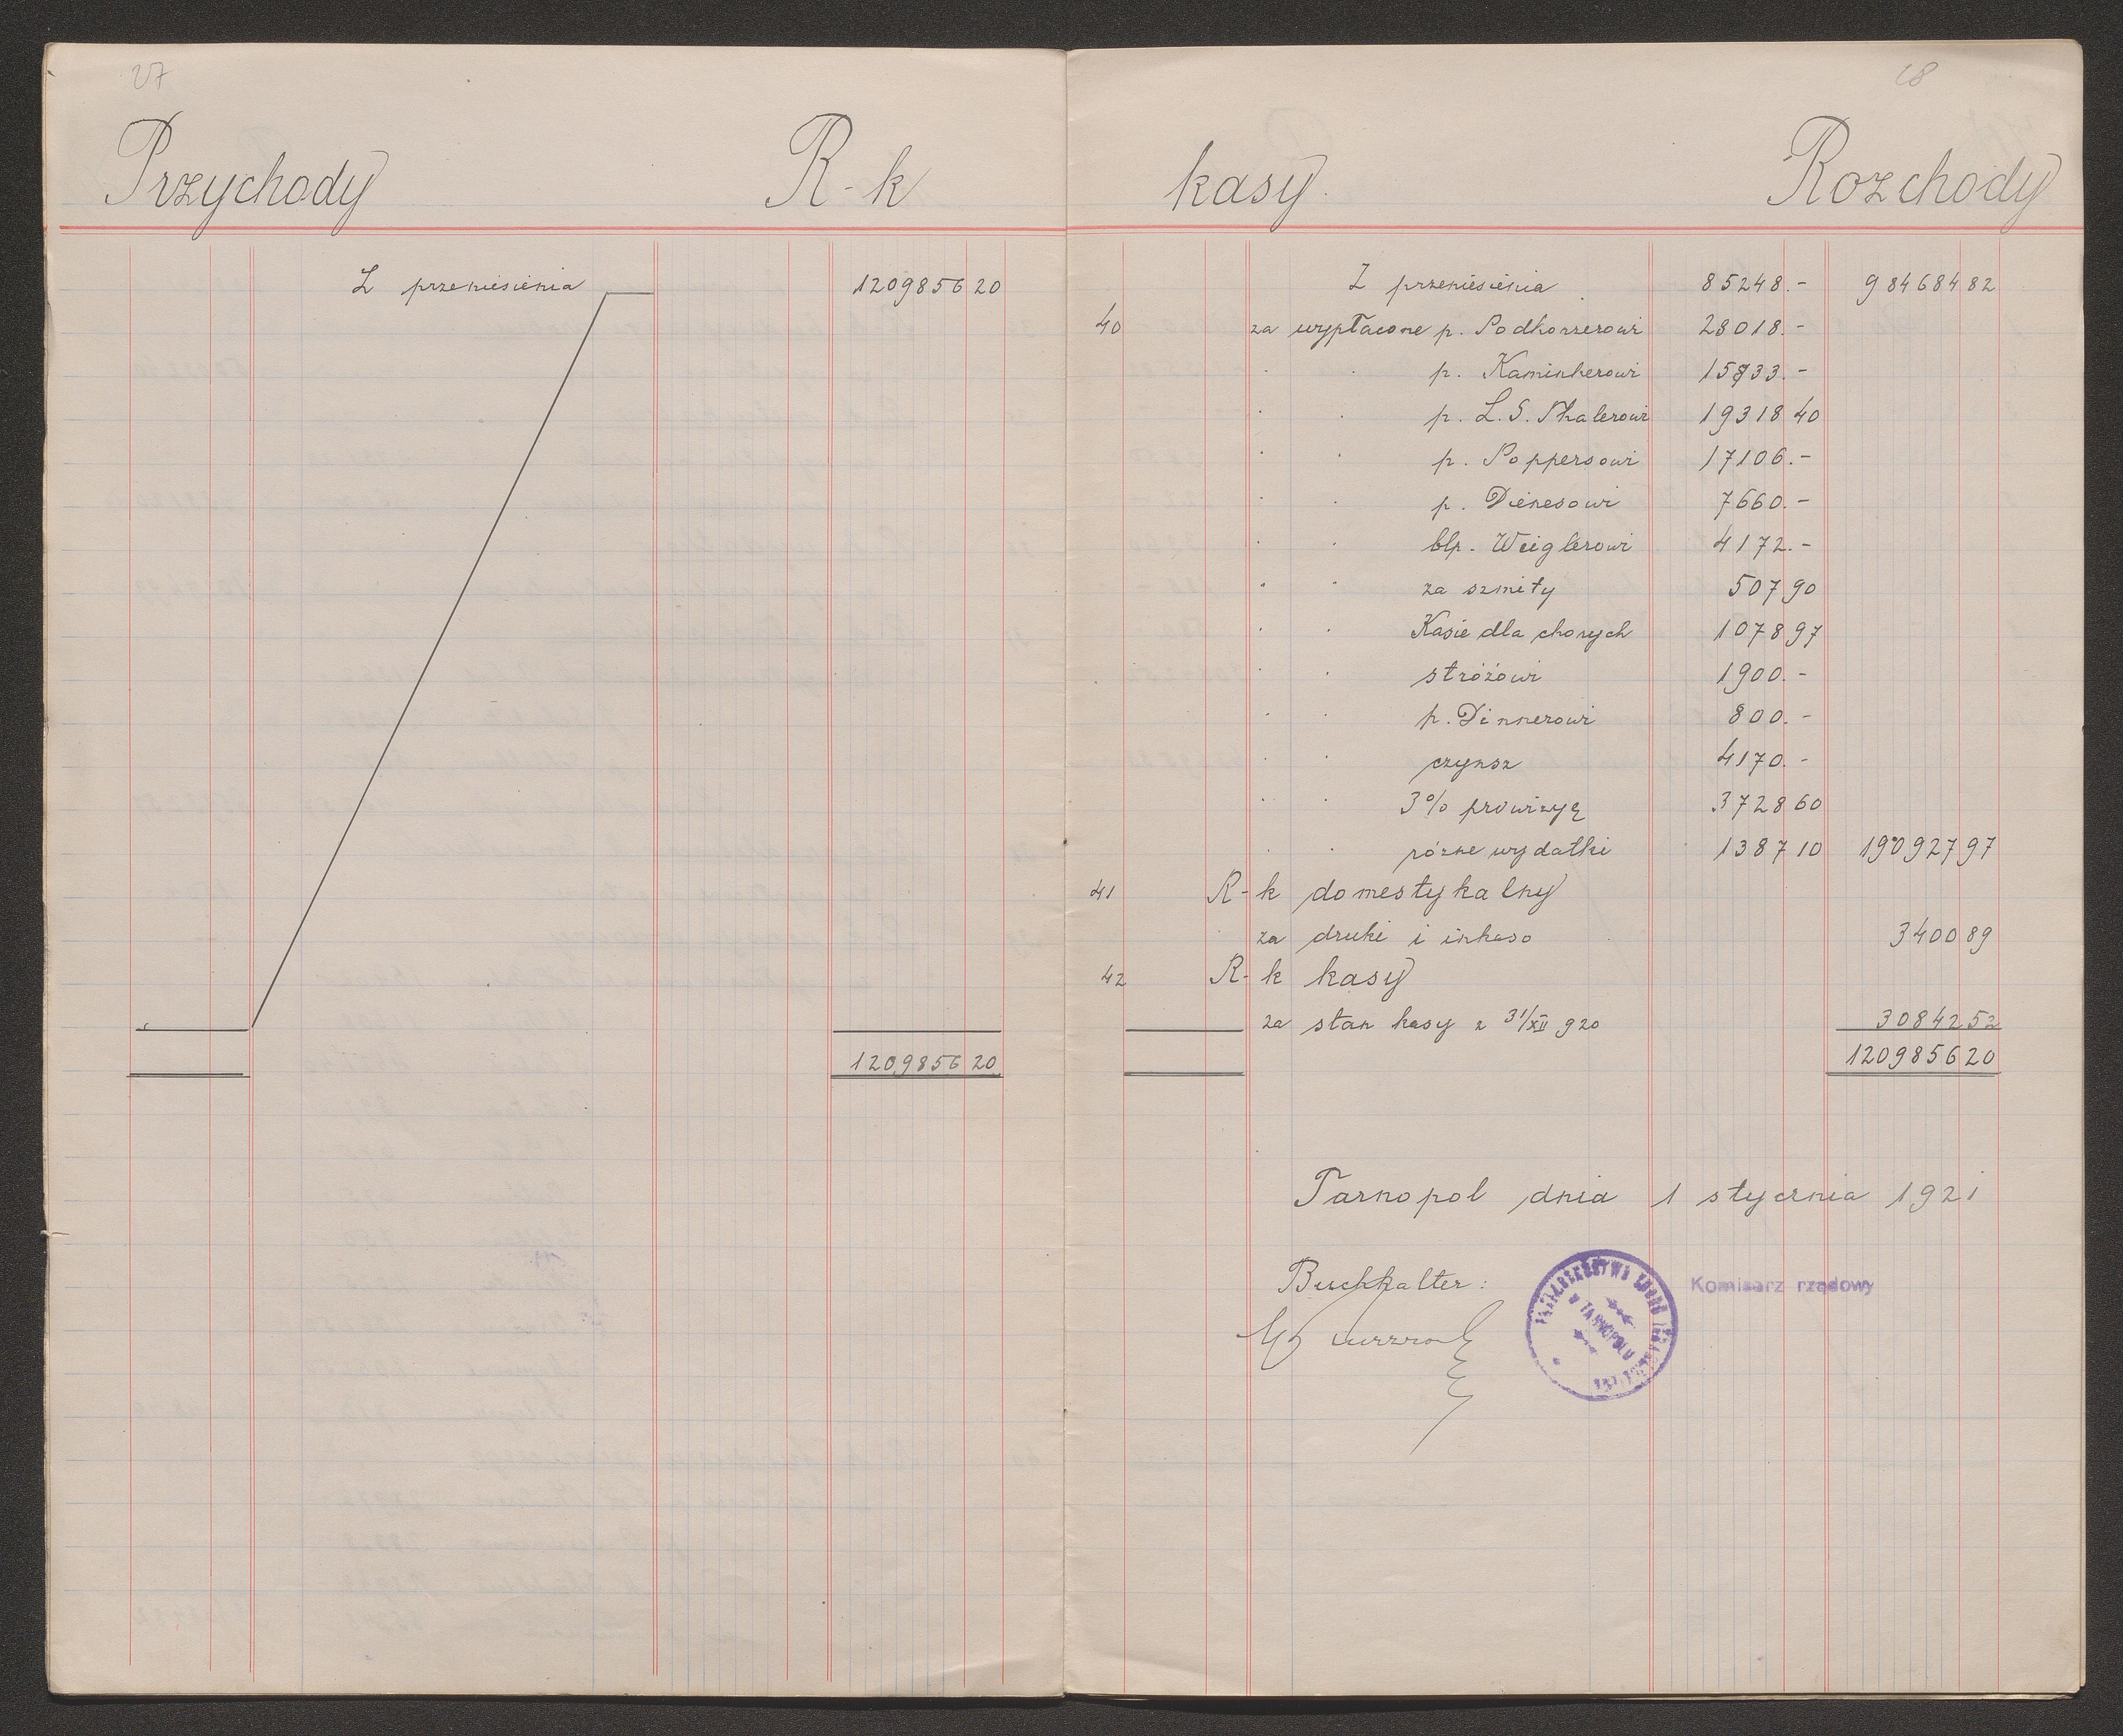 27
Przychody R-k
Z przeniesienia 1209856 20
1209856 20
28
kasy. Rozchody
Z przeniesienia 85248.- 984684 82
40 za wypłacone p. Podhorzerowi 28018.-
" " p. Kaminkerowi 15833.-
" " p. L. S. Thalerowi 19318 40
" " p. Poppersowi 17106.-
" " p. Dienesowi 7660.-
" " blp. Weiglerowi 4172.-
" " za szmity 507 90
" " Kasie dla chorych 1078 97
" " stróżowi 1900.-
" " p. Dinnerowi 800.-
" " czynsz 4170.-
" " 3% prowizyę 3728 60
" " różne wydatki 1387 10 190927 97
41 R-k domestykalny
za druki i inkaso 3400 89
42 R-k kasy
za stan kasy z 31/XII 920 30842 52
1209856 20
Tarnopol dnia 1 stycznia 1921
Buchhalter:
Komisarz rządowy
W TARNOPOLU